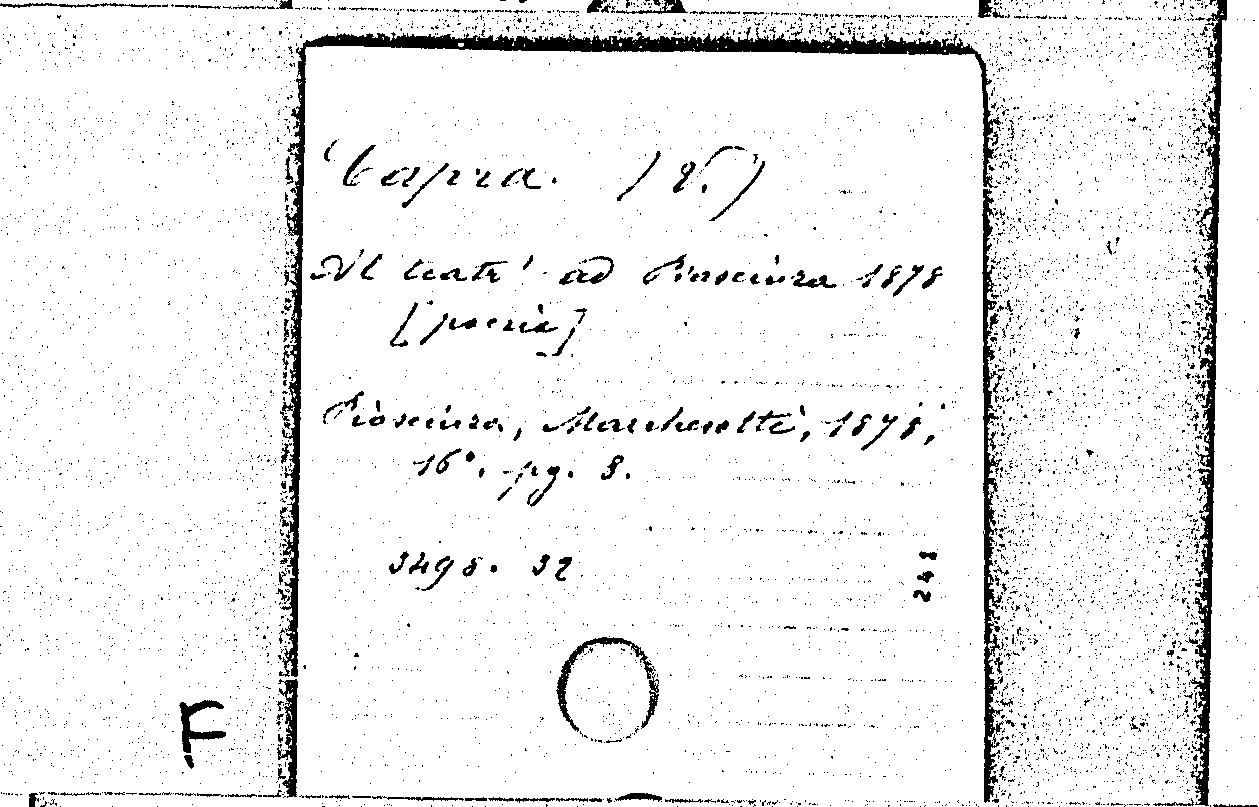 Capra. (V.)
Al teatr' ad Piosciura 1878
[poesia]
Piosciura, Marchesotti, 1878,
16°. pg. 8.
3495. 32
248
F